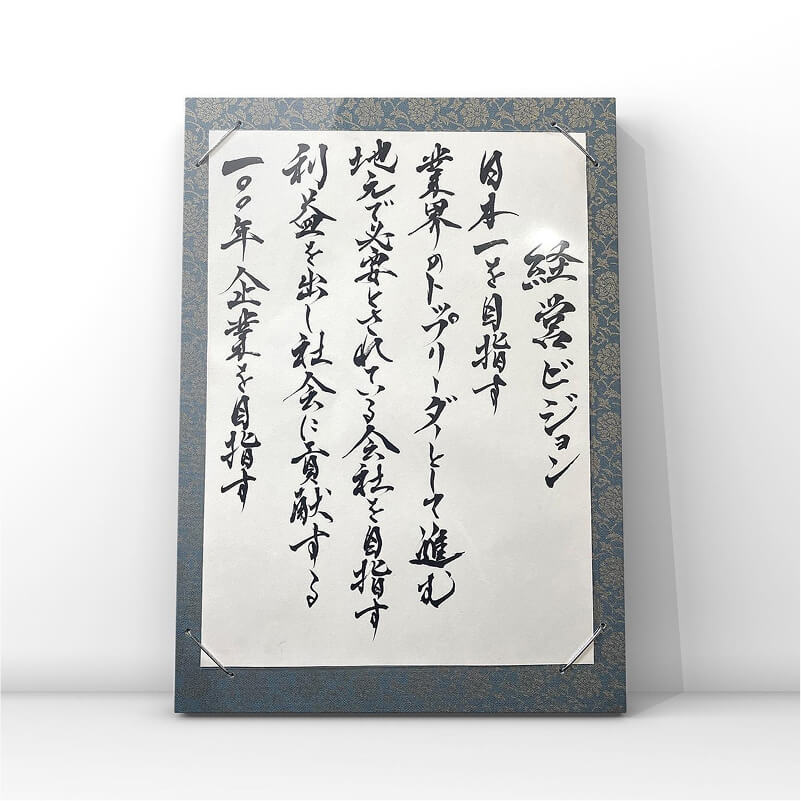 経営ビジョン
日本一を目指す
業界のトップリーダーとして進む
地元で必要とされている会社を目指す
利益を出し社会に貢献する
一〇〇年企業を目指す